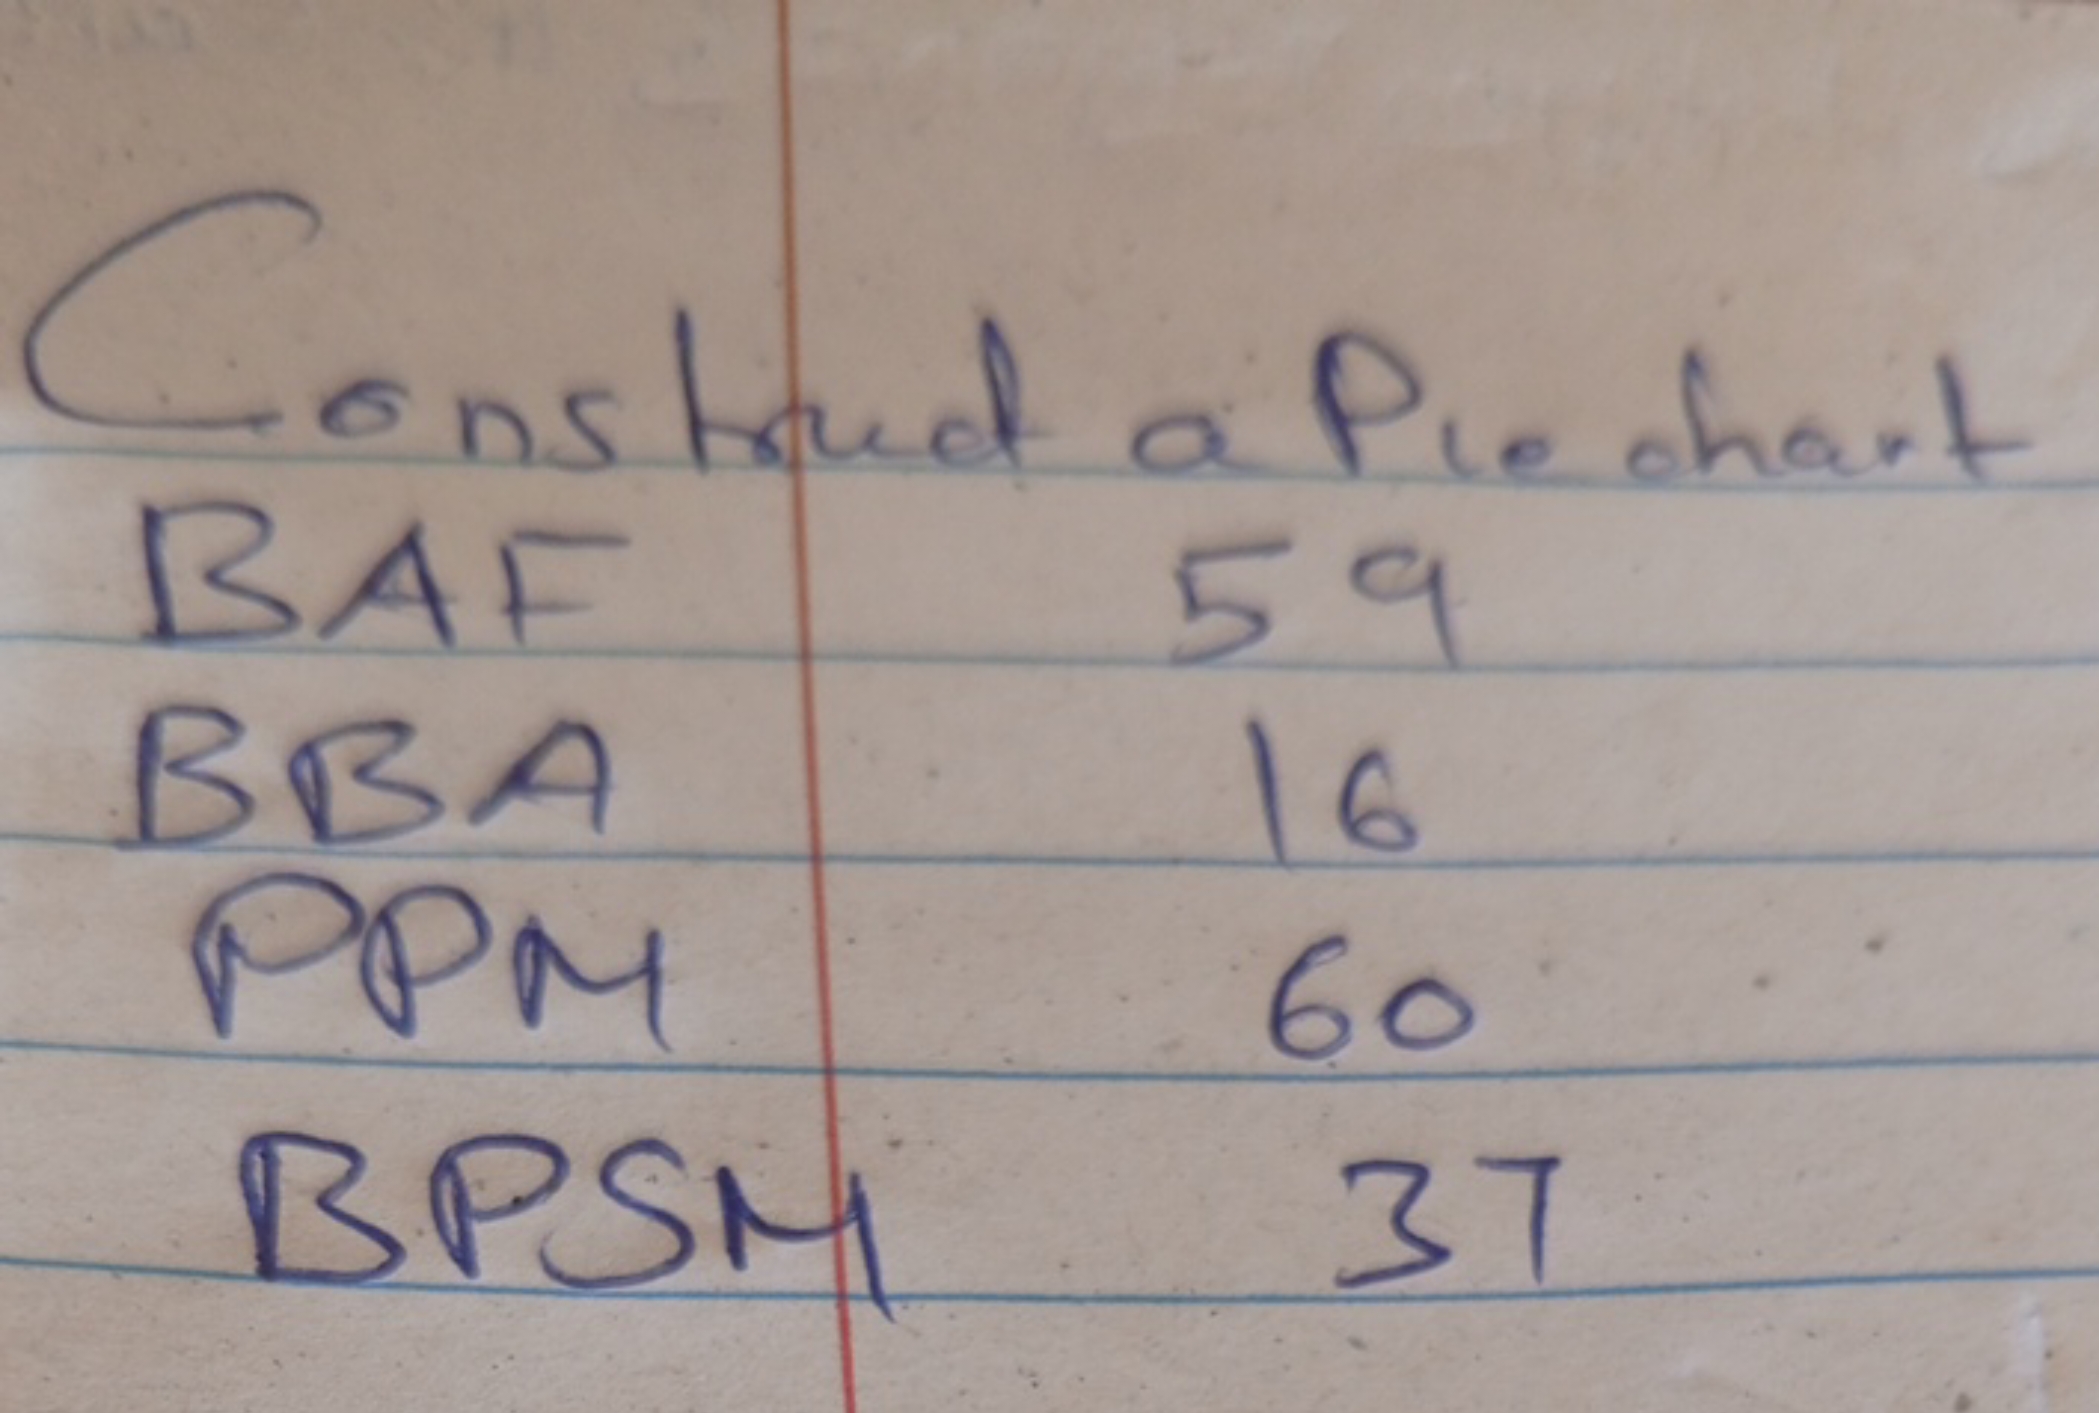 Construct a Pie chart
BAF 59
BBA 16
PPM 60
BPSM 37